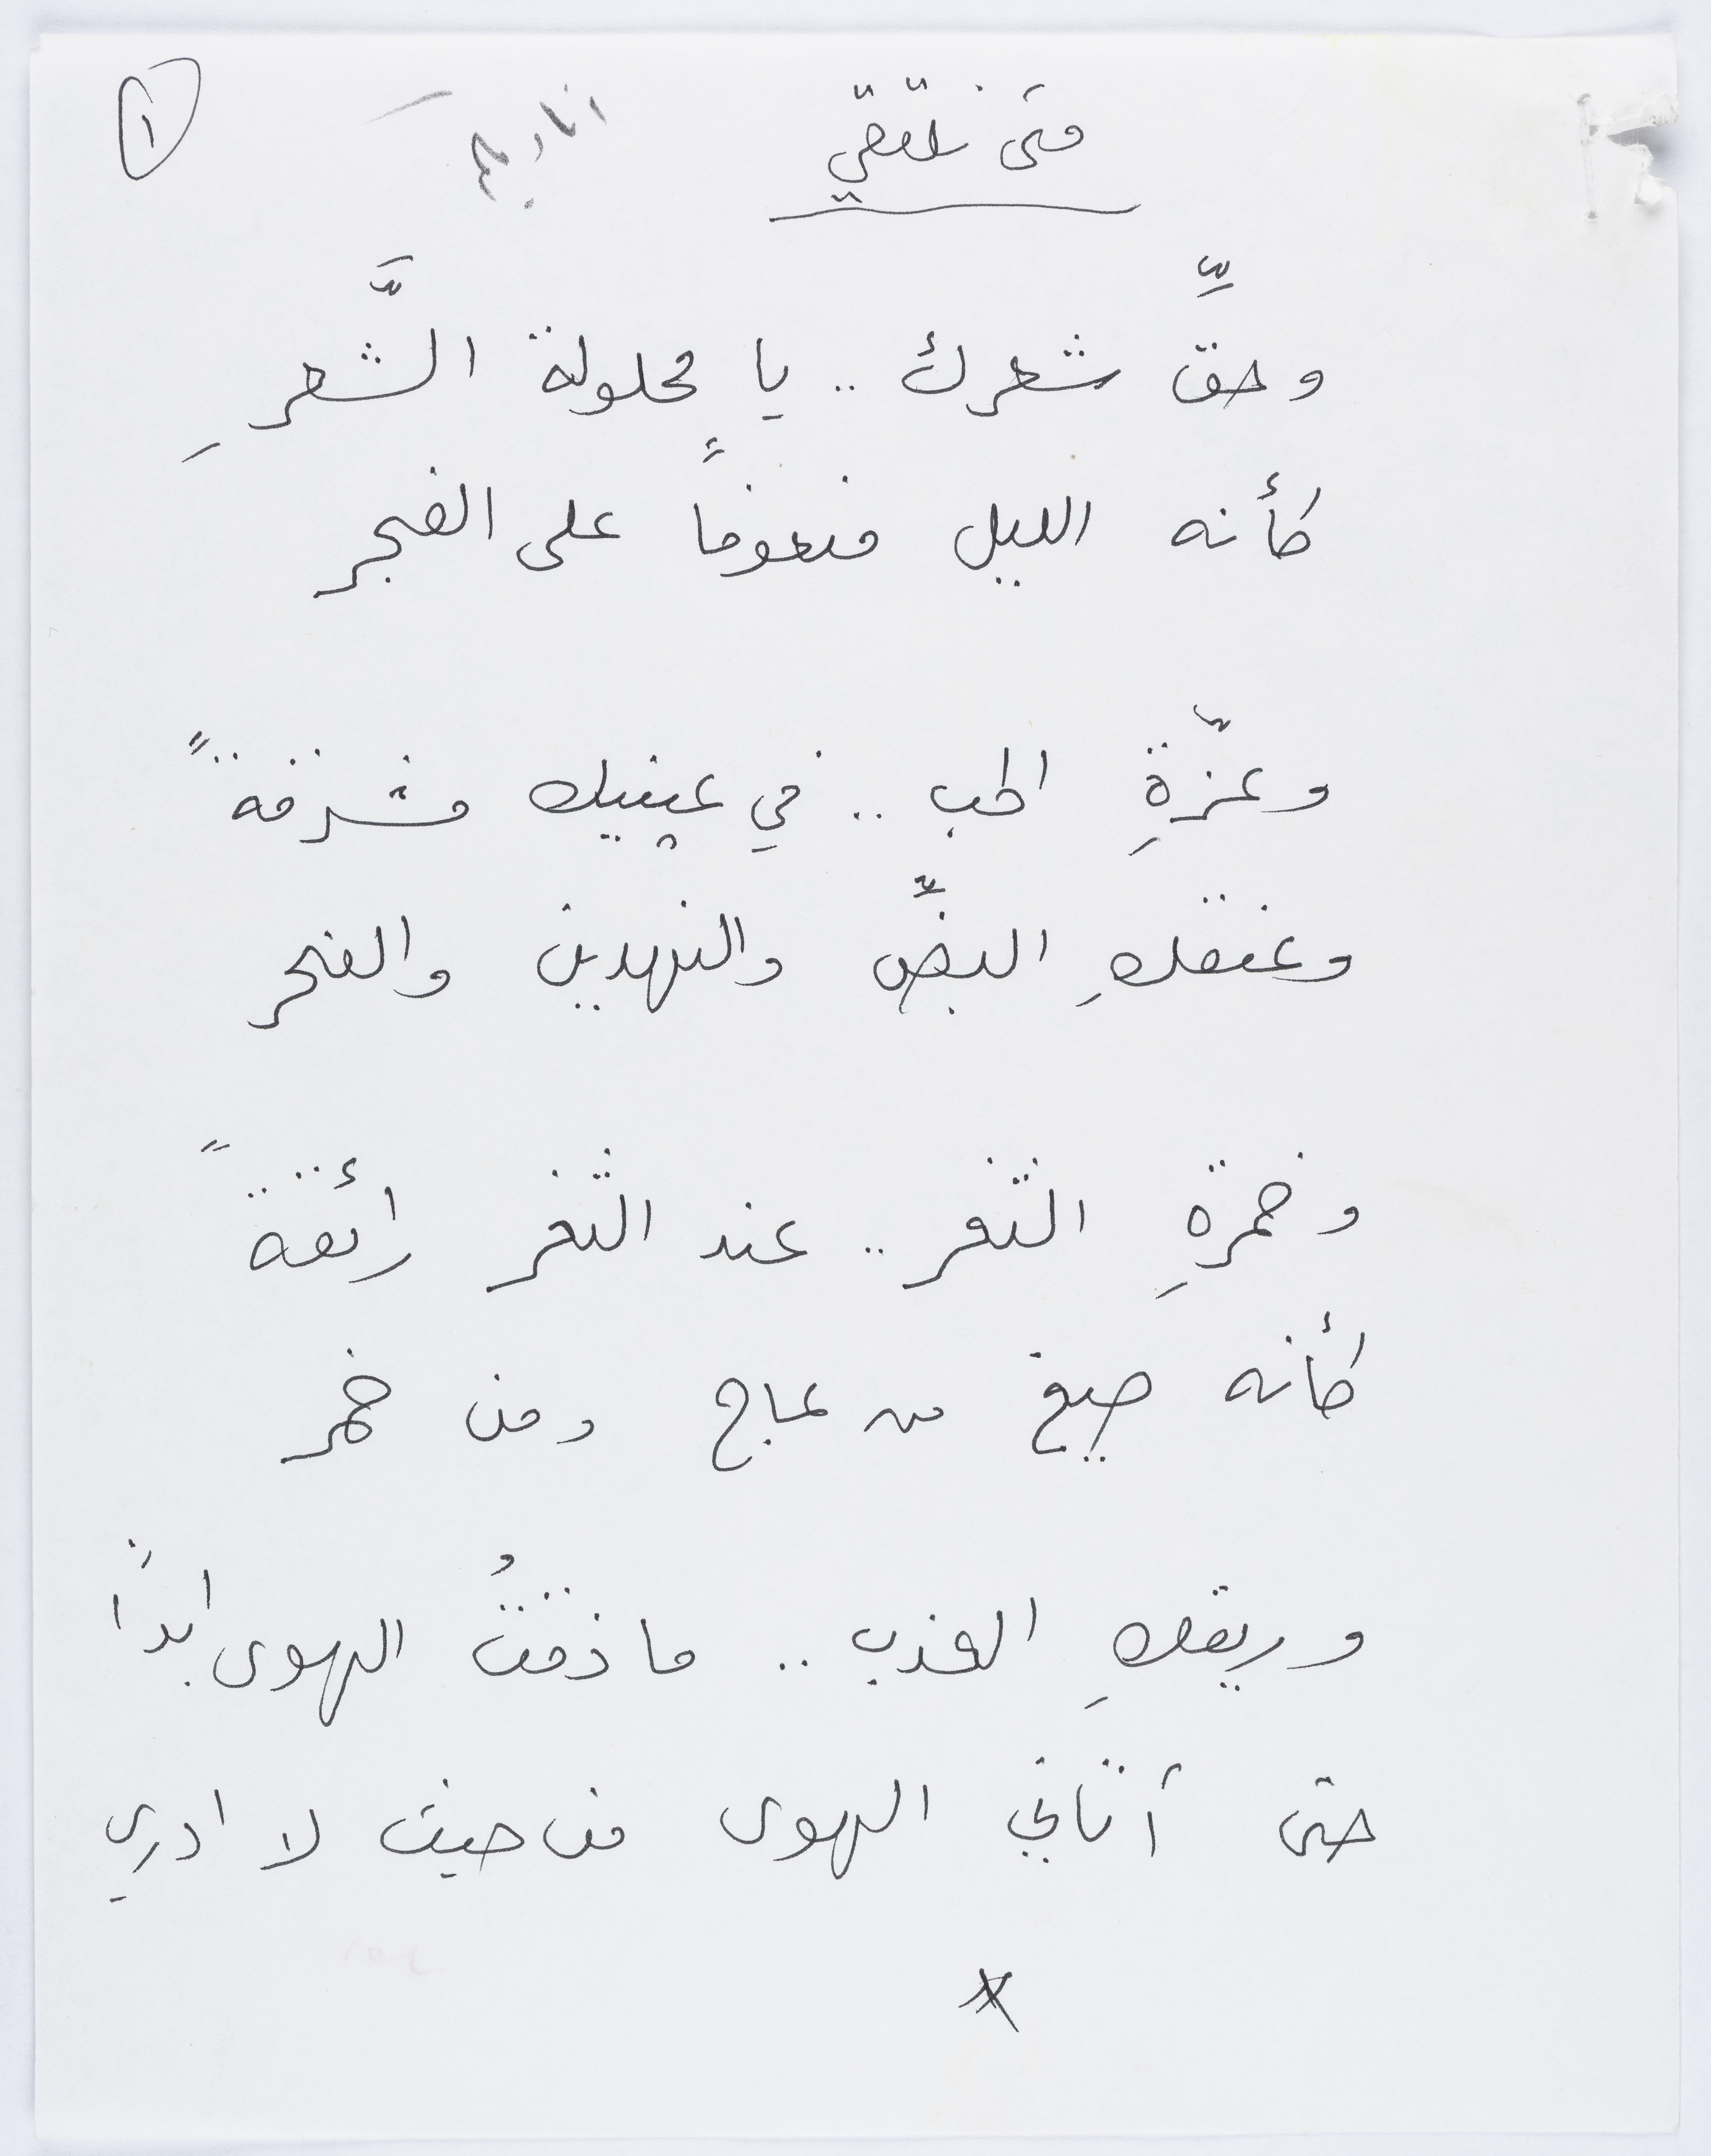 ١
متى نلتقي
وحقِّ شعرك .. يا محلولة الشَّعرِ
كأنه الليل منعوفاً على الفجر
وعزّةِ الحب .. في عينيك مشرفةً
وعنقكِ البضِّ والنهدين والنحر
وخمرةِ الثغر .. عند الثغر رائقةً
كأنه صيغ من عاج ومن خمر
وريقكِ العذب .. ما ذقتُ الهوى ابداً
حتى أتاني الهوى من حيث لا ادري